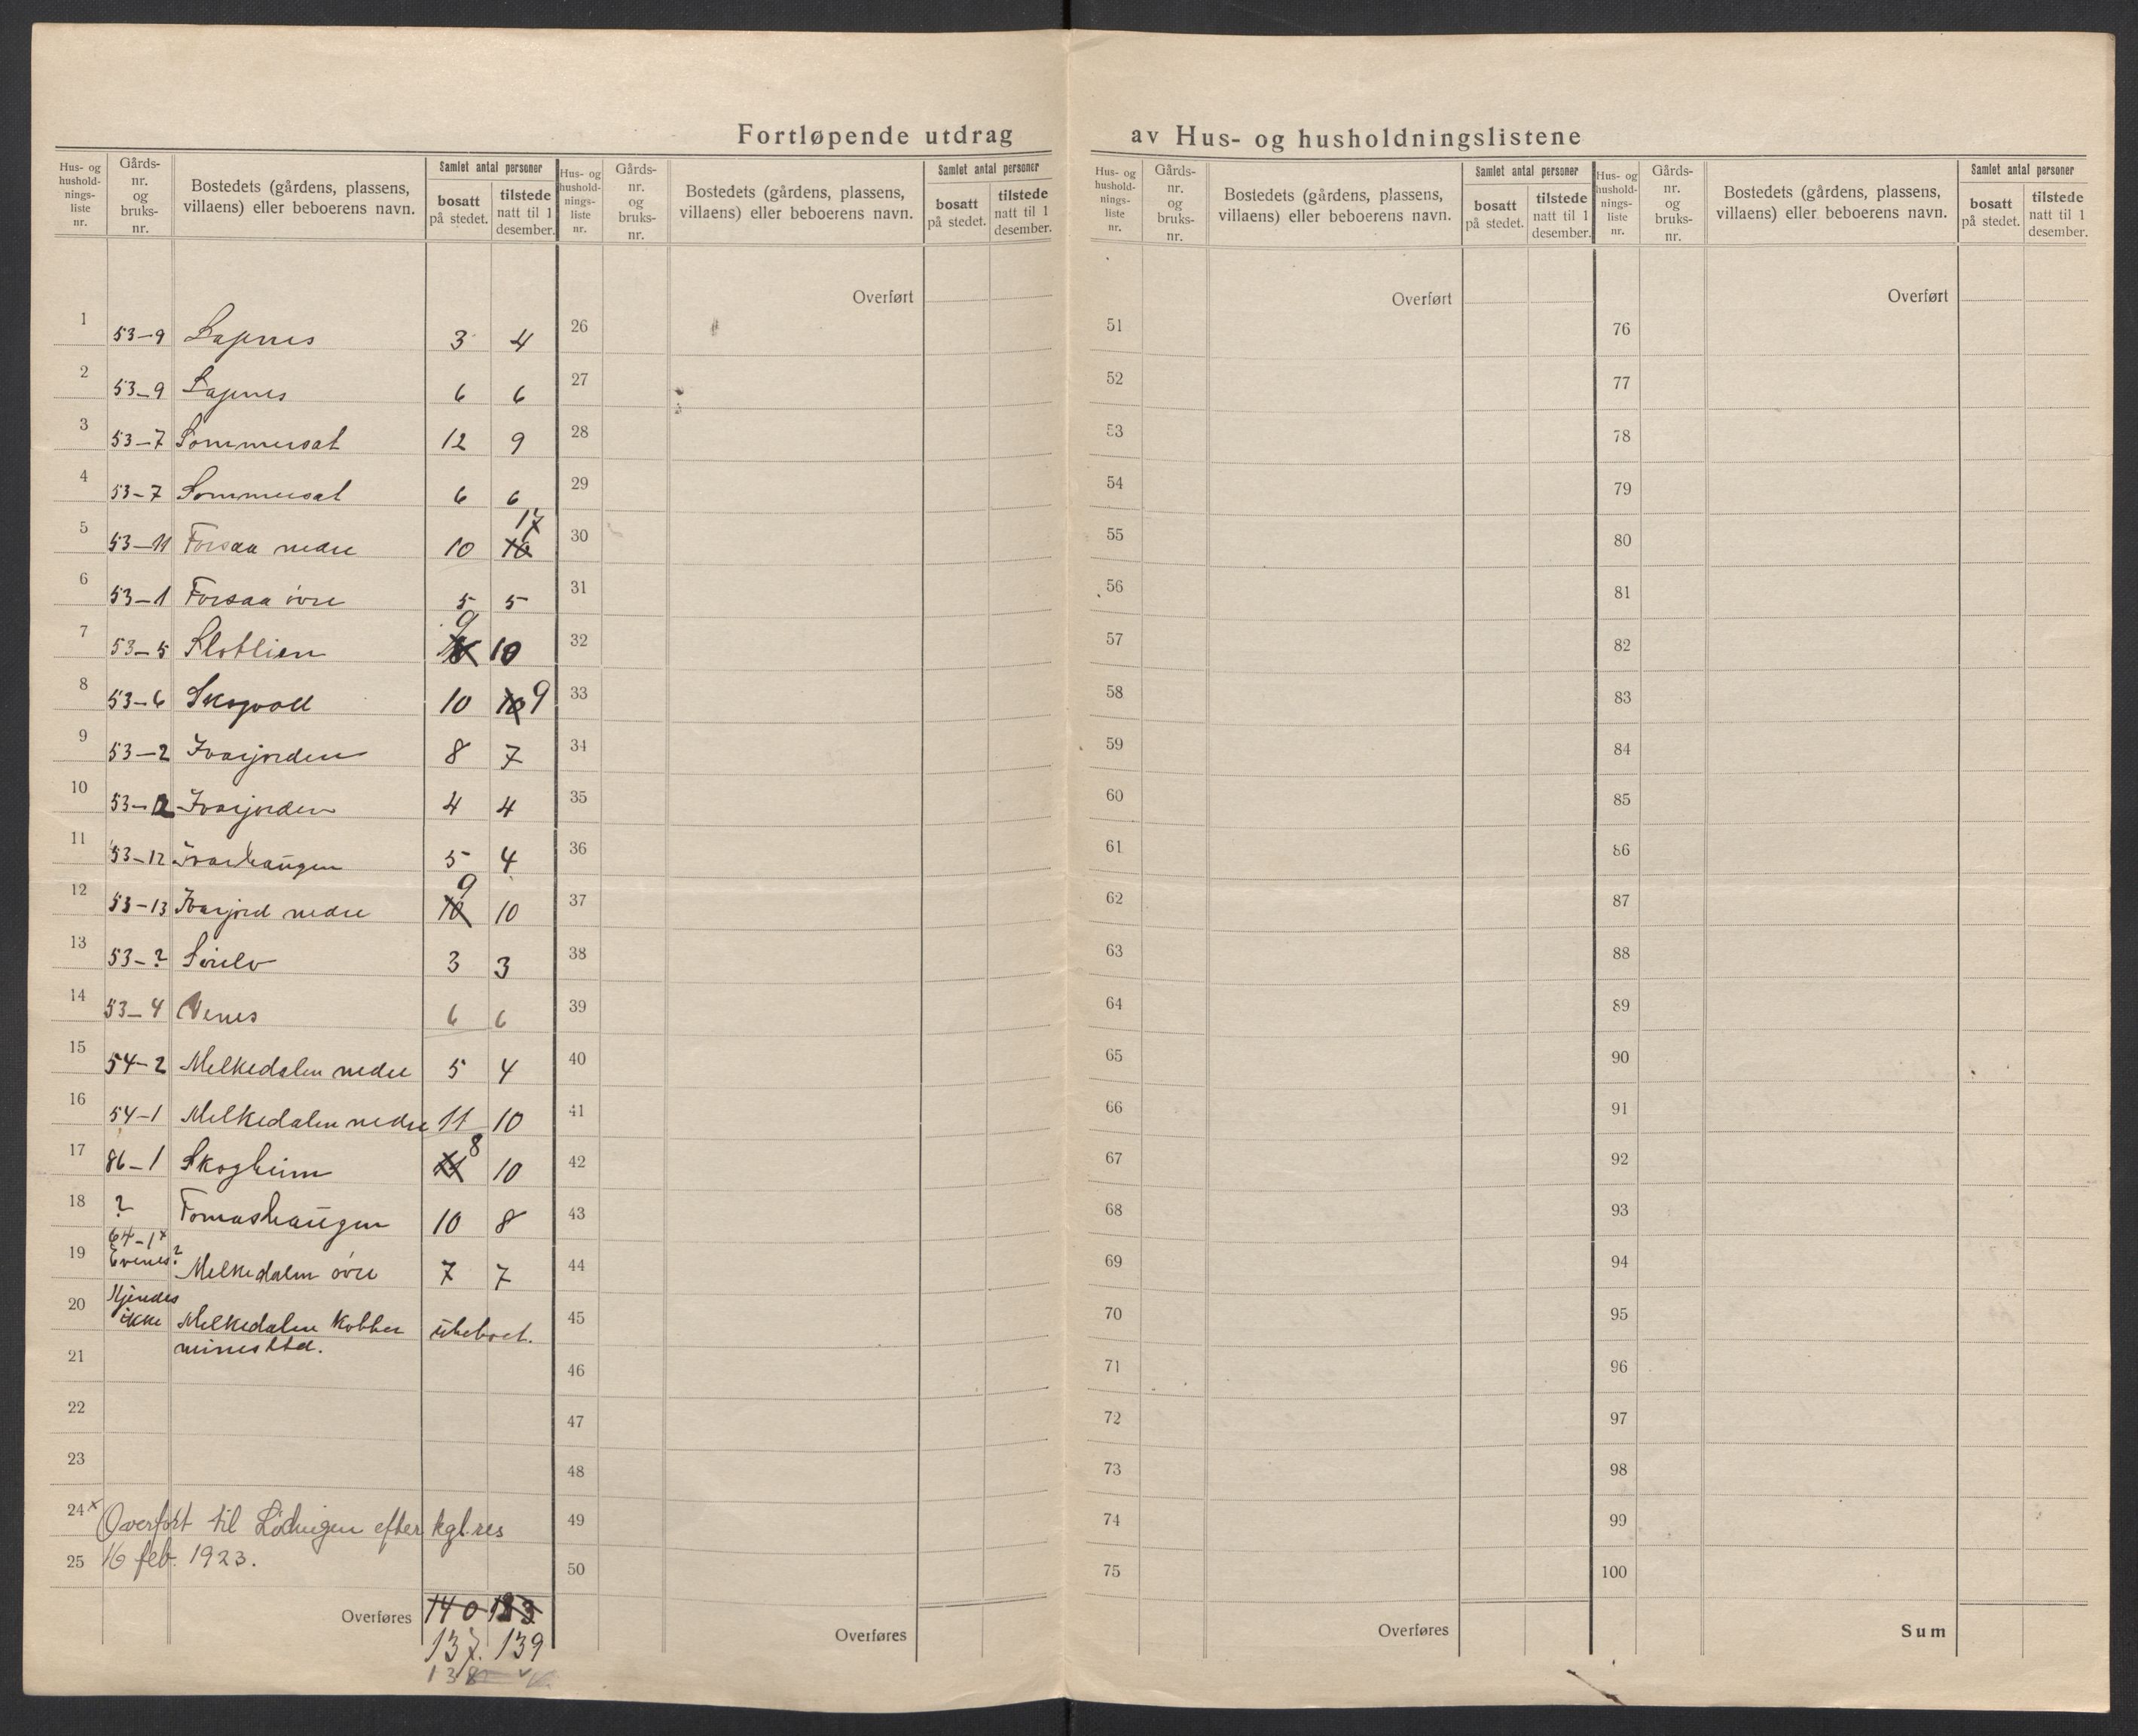 Fortløpende utdrag av Hus- og husholdningslistene
Hus- og husholdnings-liste nr. Gårds-nr. og bruks-nr. Bostedets (gårdens, plassens, villaens) eller beboerens navn. Samlet antal personer bosatt på stedet. tilstede natt til 1 desember.
Hus- og husholdnings-liste nr. Gårds-nr. og bruks-nr. Bostedets (gårdens, plassens, villaens) eller beboerens navn. Samlet antal personer bosatt på stedet. tilstede natt til 1 desember.
Hus- og husholdnings-liste nr. Gårds-nr. og bruks-nr. Bostedets (gårdens, plassens, villaens) eller beboerens navn. Samlet antal personer bosatt på stedet. tilstede natt til 1 desember.
Hus- og husholdnings-liste nr. Gårds-nr. og bruks-nr. Bostedets (gårdens, plassens, villaens) eller beboerens navn. Samlet antal personer bosatt på stedet. tilstede natt til 1 desember.
1 53-9 3 4
2 53-9 6 6
3 53-7 Sommersat 12 9
4 53-7 Sommersat 6 6
5 53-11 Forsaa nedre 10 10 17
6 53-1 Forsaa övre 5 5
7 53-5 Slotlien 9 10
8 53-6 Skogvoll 10 10 9
9 53-2 Ivarjorden 8 7
10 53-12 Ivarjorden 4 4
11 53-12 Ivarhaugen 5 4
12 53-13 Ivarjord nedre 10 9 10
13 53-? Sörelv 3 3
14 53-4 Venes 6 6
15 54-2 Melkedalen nedre 5 4
16 54-1 Melkedalen nedre 11 10
17 86-1 Skogheim 11 8 10
18 ? Tomashaugen 10 8
19 64-1x Evenes? Melkedalen övre 7 7
20 Kjendes ikke Melkedalen Kobber ubeboet.
21 mines Ltd.
22
23
24 x Overført til Lödingen efter kgl. res
25 16 feb. 1923.
Overføres 140 133
137. 139
138
Overført
26
27
28
29
30
31
32
33
34
35
36
37
38
39
40
41
42
43
44
45
46
47
48
49
50
Overføres
Overført
51
52
53
54
55
56
57
58
59
60
61
62
63
64
65
66
67
68
69
70
71
72
73
74
75
Overføres
Overført
76
77
78
79
80
81
82
83
84
85
86
87
88
89
90
91
92
93
94
95
96
97
98
99
100
Sum